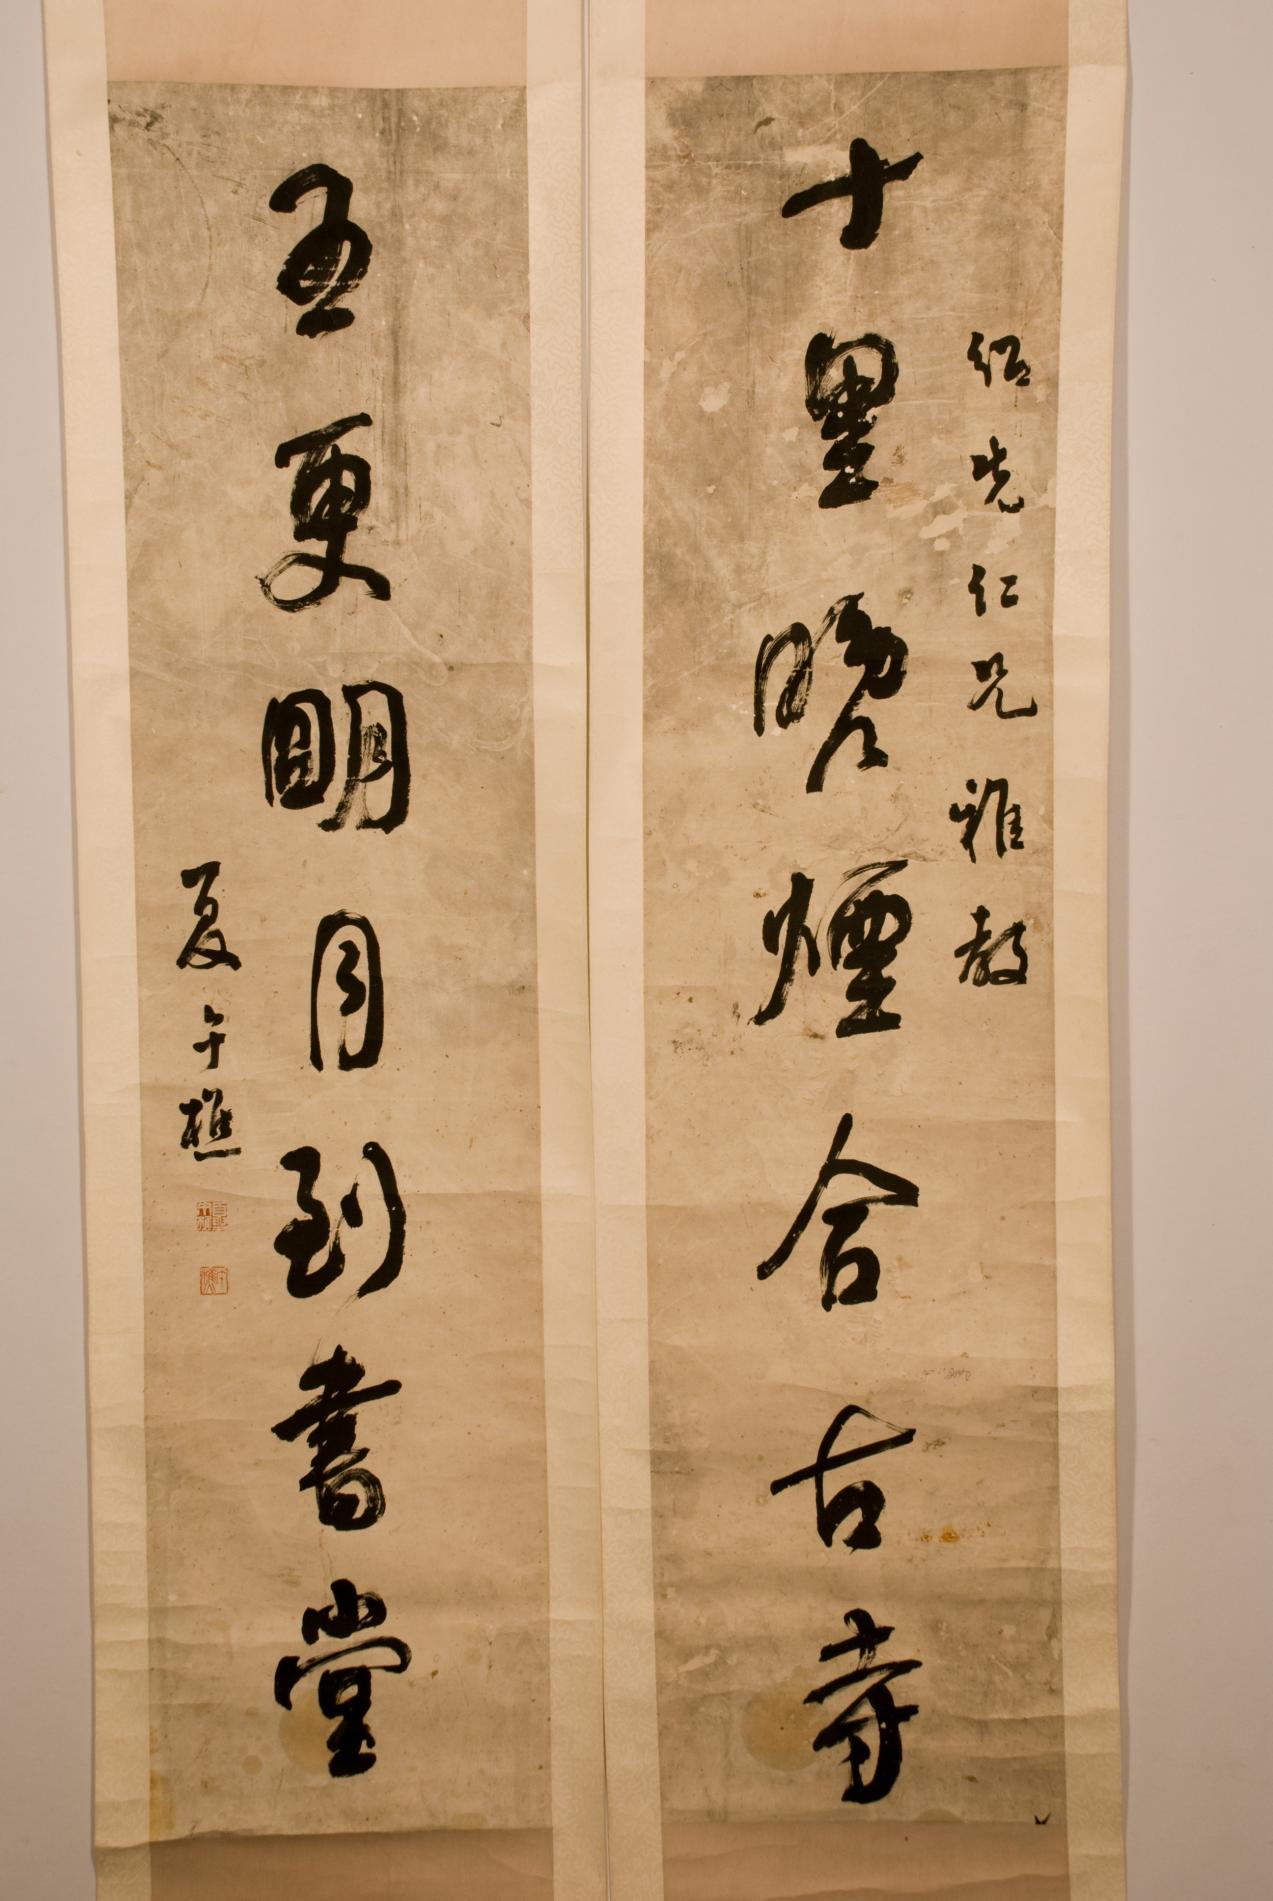 紹先仁兄雅教
十里晚煙合古寺
五更明月到書堂
夏午樵